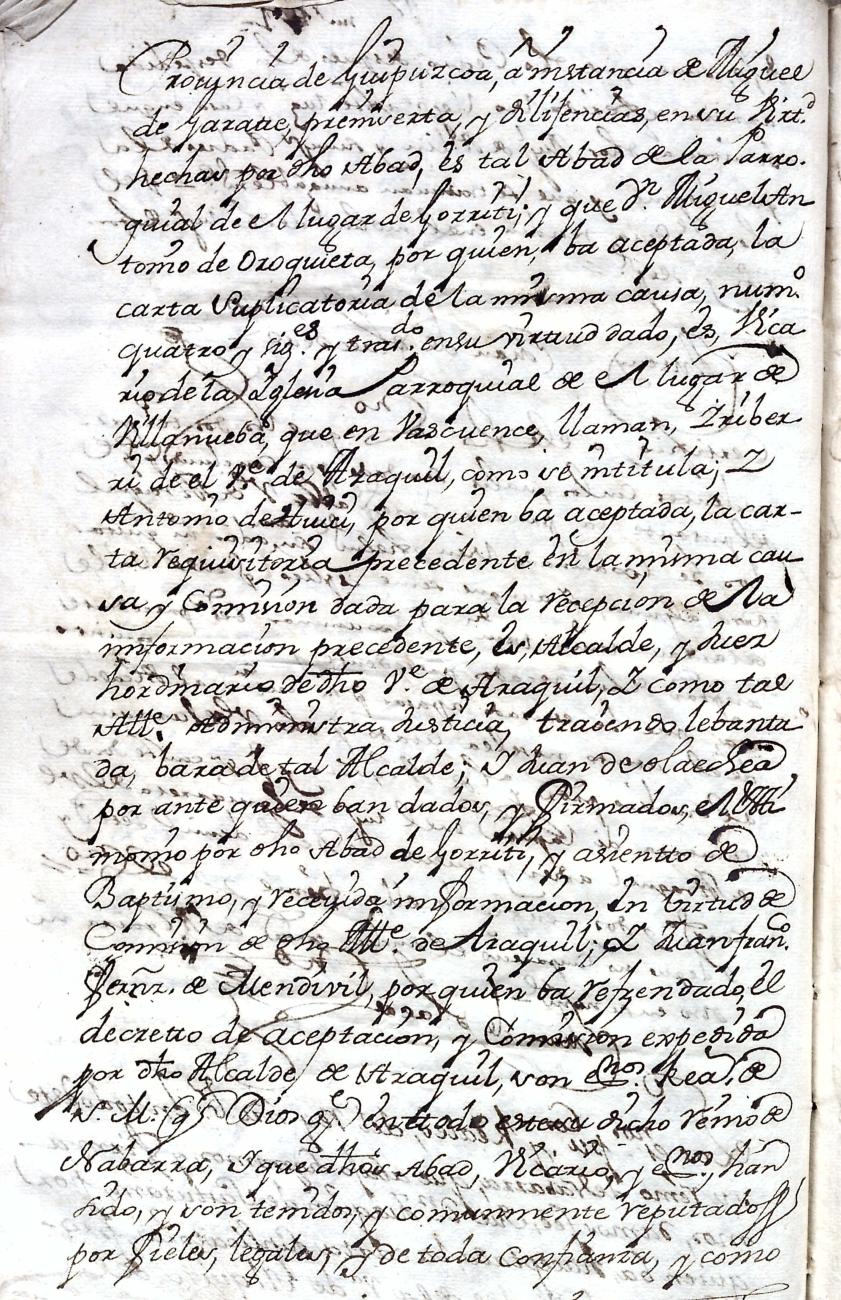 Provyncia de Guipuzcoa, á instancia de Miguel
de Garate, premiserta, y dilifencias, en su Virt.d
hechas por dho Abad, es tal Abad de la Parro-
quial de el lugar de Gorriti; y que Dn. Miguel An
tonio de Oroquieta, por quien, ba aceptada, la
carta Suplicatoria de la misma causa, num.o
quatro y sig.es y tras.do en su virtud dado, es, Vica
rio de la Yglesia Parroquial de el lugar de
Villanueba, que en Vascuence, llaman, Yriber
ri de el Ve. de Araquil, como se intitula; Y
Antonio de , por quien ba aceptada, la car-
ta requisitoria precedente en la misma cau
sa, y Comision dada para la recepcion de la
imformacion precedente, es, Alcalde, y Juez
hordinario de dho Ve. de Araquil, Y como tal
Alle. Administra Justicia, trayendo lebanta
da, bara de tal Alcalde; Y Juan de Olaechea
por ante quien ban dados, y Firmados, el Testi
monio por dho Abad de Gorriti, y asientto de
Baptismo, y recevida imformacion, en birtud de
Comision de dho Alle. de Araquil; Y Juan fran.co
Fernz. de Mendivil, por quien ba refrendado, el
decretto de aceptacion, y Comision expedida
por dho Alcalde de Araquil, son esnos. Reas. de
S. M. (q Dios ge) en ttodo este su dicho reino de
Nabarra, Y que dhos Abad, Vicario, y esnos, han
sido, y son tenidos, y comunmente reputados
por Fieles, legales, y de toda Confianza, y como